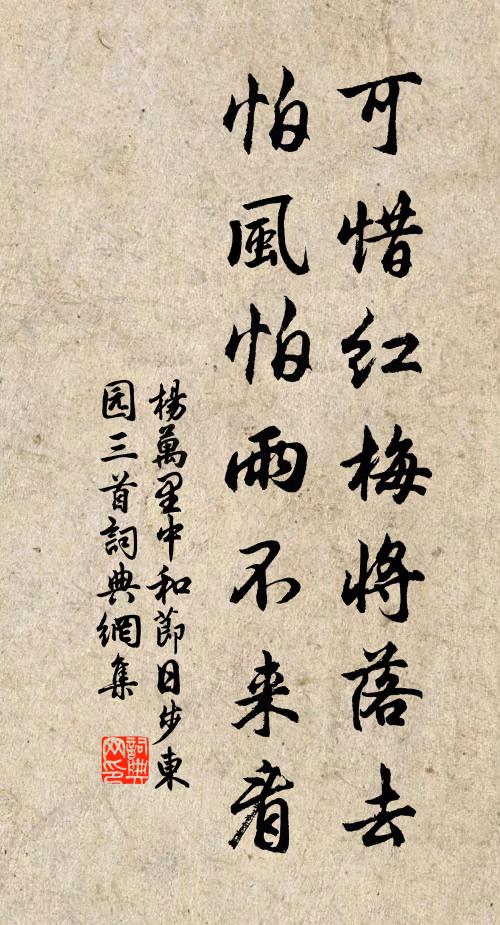 可惜红梅将落去
怕風怕雨不来看
楊萬里中和節日步東
园三首詞典網集
詞典网印